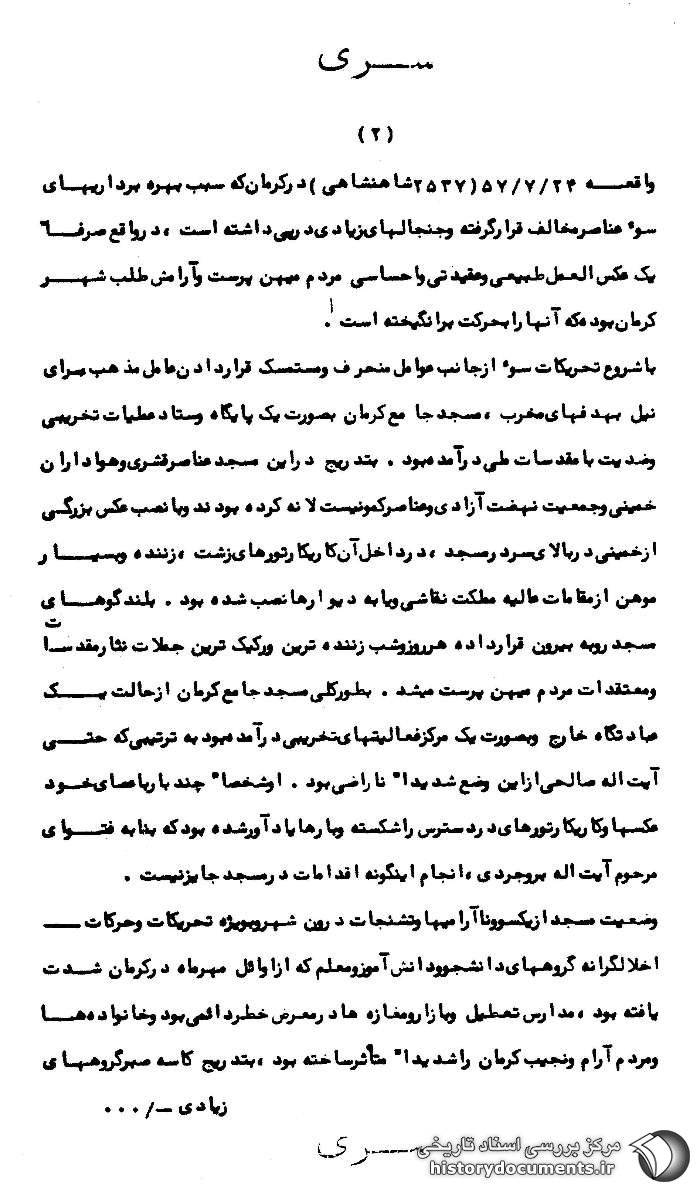 سری
(۲)
واقعه ۵۷/۷/۲۴ (۲۵۳۷ شاهنشاهی) در کرمان که سبب بهره برداریهای
سوء عناصر مخالف قرار گرفته وجنجالهای زیادی در پی داشته است ، در واقع صرفاً
یک عکس العمل طبیعی وعقیدتی واحساسی مردم میهن پرست وآرامش طلب شهر
کرمان بوده که آنها را بحرکت برانگیخته است .
با شروع تحریکات سوء ازجانب عوامل منحرف ومستمسک قرار دادن عامل مذهب برای
نیل بهدفهای مخرب ، مسجد جامع کرمان بصورت یک پایگاه وستاد عملیات تخریبی
وضدیت با مقدسات ملی درآمده بود . بتدریج در این مسجد عناصر قشری وهواداران
خمینی وجمعیت نهضت آزادی وعناصر کمونیست لانه کرده بودند وبا نصب عکس بزرگی
ازخمینی در بالای سردر مسجد ، در داخل آن کاریکارتورهای زشت ، زننده وبسیار
موهن از مقامات عالیه مملکت نقاشی ویا به دیوارها نصب شده بود . بلندگوهای
مسجد روبه بیرون قرار داده هرروز وشب زننده ترین ورکیک ترین جملات نثار مقدسات
ومعتقدات مردم میهن پرست میشد . بطورکلی مسجد جامع کرمان ازحالت یک
عبادتگاه خارج وبصورت یک مرکز فعالیتهای تخریبی درآمده بود به ترتیبی که حتی
آیت اله صالحی ازاین وضع شدیداً ناراضی بود . اوشخصاً چند بار باعصای خود
عکسها وکاریکارتورهای در دسترس را شکسته وبارها یادآور شده بود که بنا به فتوای
مرحوم آیت اله بروجردی ، انجام اینگونه اقدامات در مسجد جایز نیست .
وضعیت مسجد ازیکسو وناآرامیها وتشنجات درون شهر وبویژه تحریکات وحرکات
اخلالگرانه گروههای دانشجوودانش آموزومعلم که ازاوائل مهرماه در کرمان شدت
یافته بود ، مدارس تعطیل وبازار ومغازه ها در معرض خطر دائمی بود وخانواده ها
ومردم آرام ونجیب کرمان را شدیداً متأثر ساخته بود ، بتدریج کاسه صبر گروههای
زیادی -/۰۰۰
سری
مرکز بررسی اسناد تاریخی
historydocuments.ir